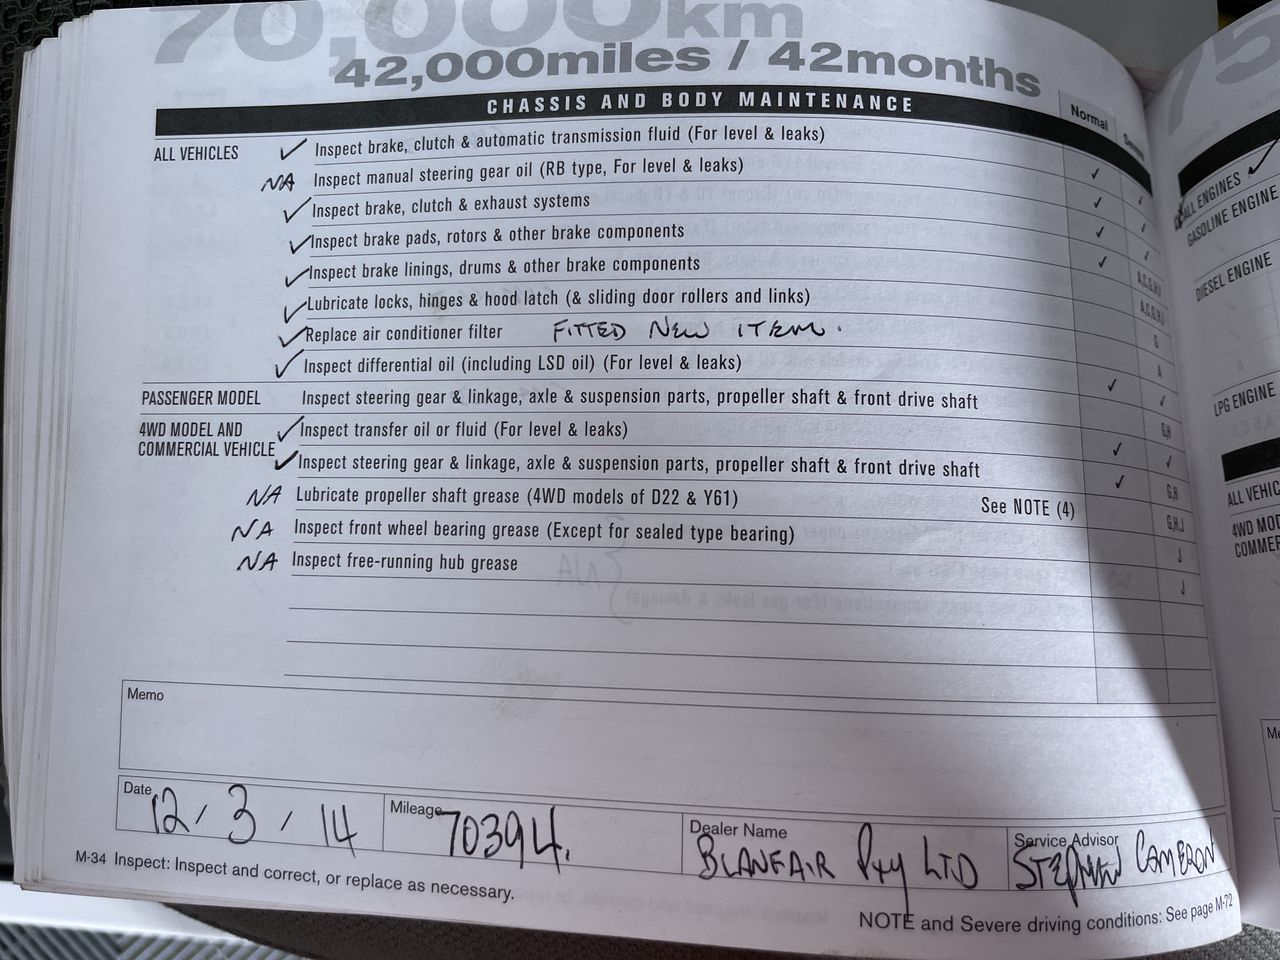 70,000km
42,000miles / 42months
CHASSIS AND BODY MAINTENANCE
Normal
ALL VEHICLES ✓ Inspect brake, clutch & automatic transmission fluid (For level & leaks) ✓ ✓
NA Inspect manual steering gear oil (RB type, For level & leaks) ✓ ✓
✓ Inspect brake, clutch & exhaust systems ✓ ✓
✓ Inspect brake pads, rotors & other brake components ✓
✓ Inspect brake linings, drums & other brake components
✓ Lubricate locks, hinges & hood latch (& sliding door rollers and links) G
✓ Replace air conditioner filter FITTED NEW ITEM. A
✓ Inspect differential oil (including LSD oil) (For level & leaks) ✓ ✓
PASSENGER MODEL Inspect steering gear & linkage, axle & suspension parts, propeller shaft & front drive shaft G,H
4WD MODEL AND
COMMERCIAL VEHICLE
✓ Inspect transfer oil or fluid (For level & leaks) ✓ ✓
✓ Inspect steering gear & linkage, axle & suspension parts, propeller shaft & front drive shaft ✓ G,H
NA Lubricate propeller shaft grease (4WD models of D22 & Y61) See NOTE (4) G,H,J
NA Inspect front wheel bearing grease (Except for sealed type bearing) J
NA Inspect free-running hub grease J
Memo
Date 12/3/14
Mileage 70394.
Dealer Name BLANFAIR Pty LTD
Service Advisor STEPHEN CAMERON
M-34 Inspect: Inspect and correct, or replace as necessary.
NOTE and Severe driving conditions: See page M-72
75
ALL ENGINES ✓
GASOLINE ENGINE
DIESEL ENGINE
LPG ENGINE
ALL VEHIC
4WD MOD
COMMER
Me